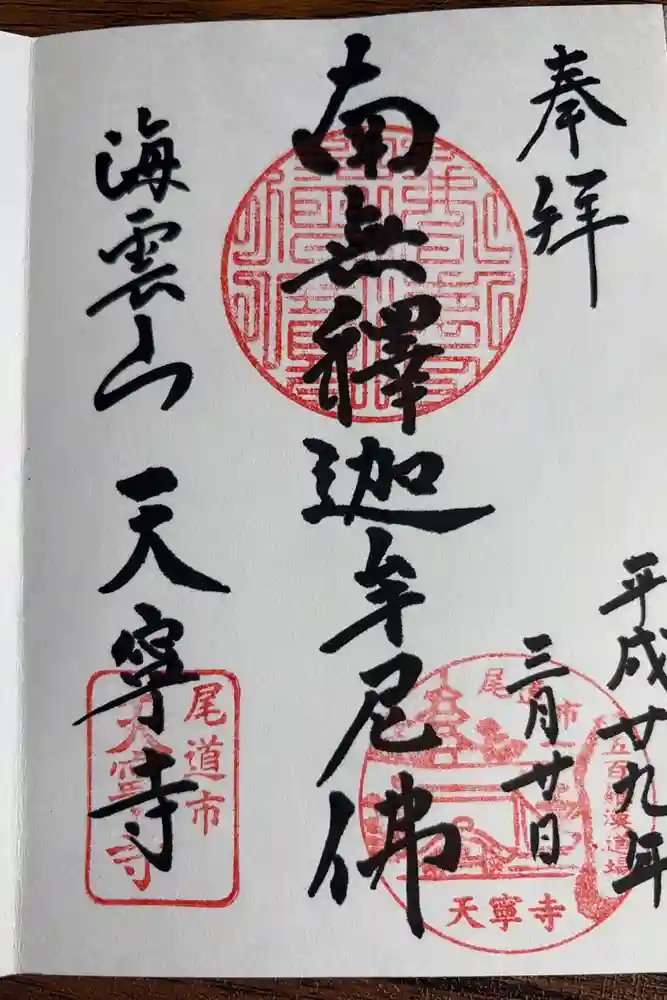 奉拝
平成廿九年
三月廿日
南無釋迦牟尼佛
海雲山 天寧寺
尾道市
五百羅漢道場
天寧寺
尾道市
天寧寺